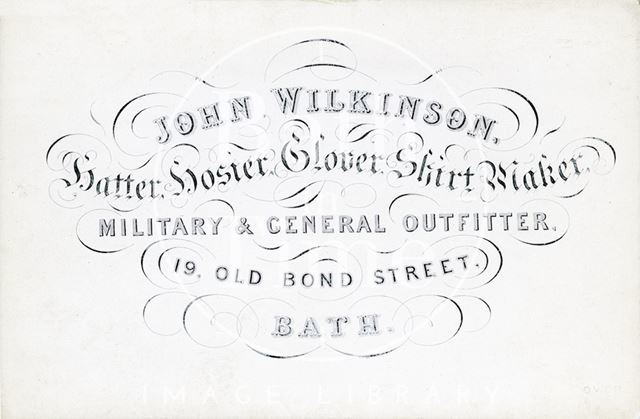 JOHN WILKINSON,
Hatter, Hosier, Glover, Shirt Maker,
MILITARY & GENERAL OUTFITTER,
19, OLD BOND STREET,
BATH.
OVER
IMAGE LIBRARY